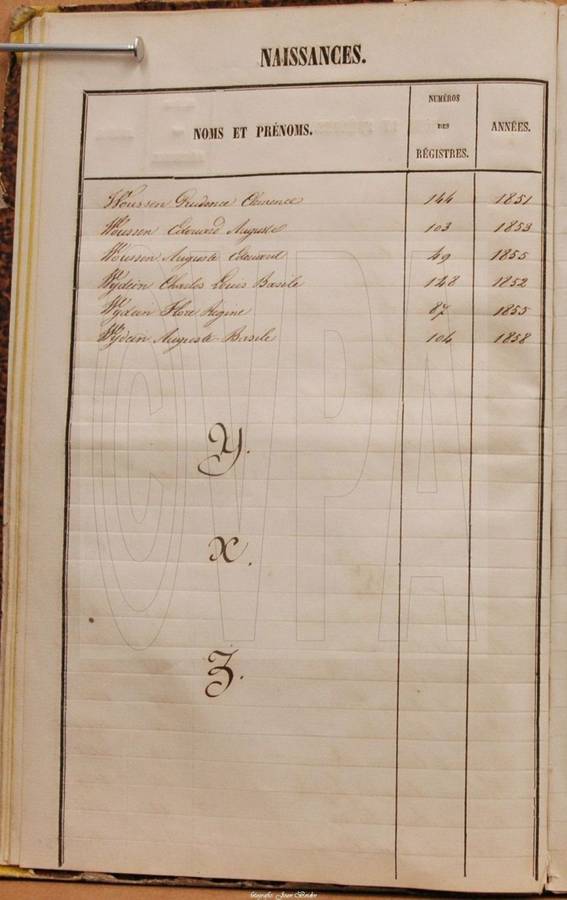 NAISSANCES.
NOMS ET PRÉNOMS.
NUMÉROS
DES
RÉGISTRES.
ANNÉES.
Woussen Prudence Clarence 144 1851
Woussen Edouard Auguste 103 1853
Woussen Auguste Edouard 49 1855
Wydein Charles Louis Basile 148 1852
Wydein Flore Régine 87 1855
Wydein Auguste-Basile 104 1858
Y.
X.
Z.
CVPA